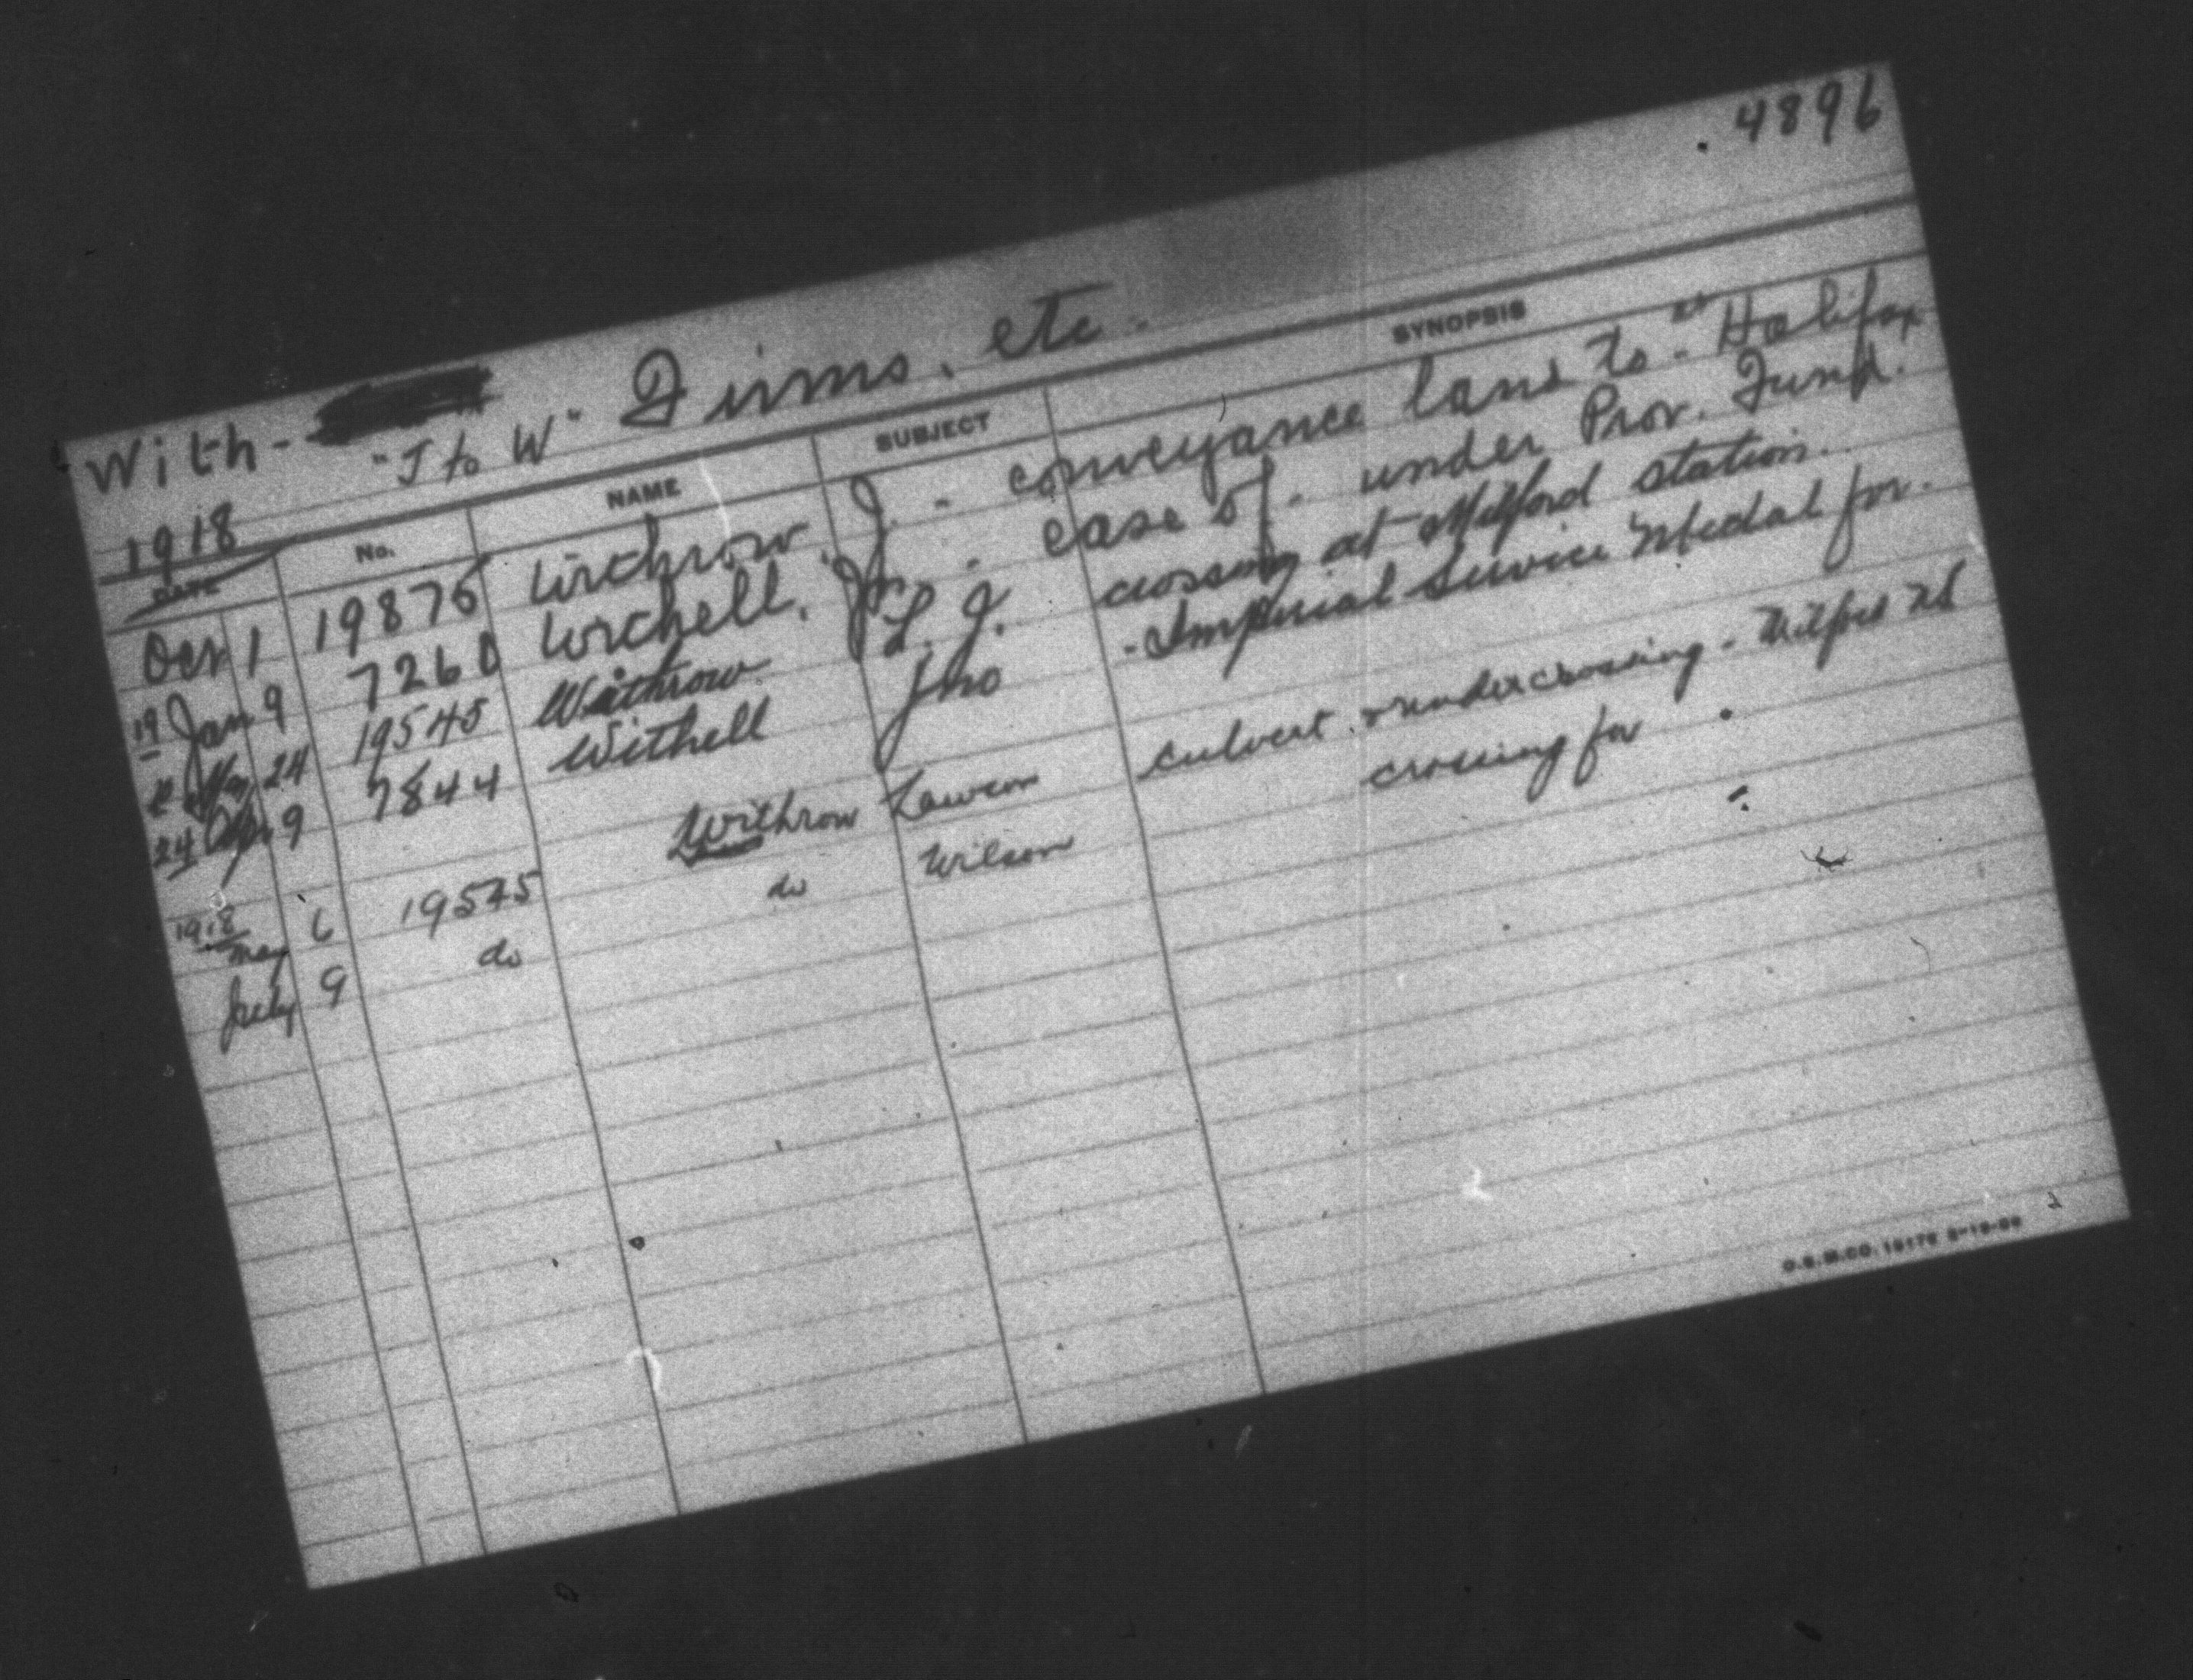 4896
With-
"J to W" Firms, etc.
1918
DATE No. NAME SUBJECT SYNOPSIS
Oct 1 19875 Withrow J. - conveyance land to - at Halifax
19 Jan 9 7260 Witchell, Jn. - case of - under Prov. Fund.
May 24 19545 Withrow L. J. crossing at Milford station.
24 Apr 9 7844 Withell Jno - Imperial Service Medal for.
1918
May 6 19545 Withrow Lawson culvert undercrossing - Milford NS
July 9 do do Wilson crossing for